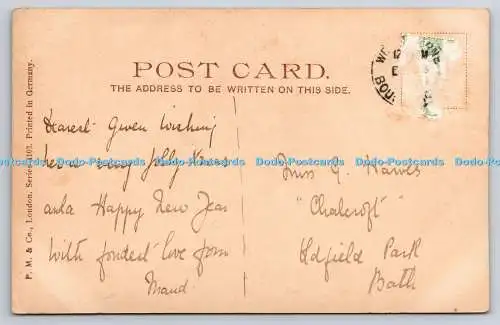 POST CARD.
THE ADDRESS TO BE WRITTEN ON THIS SIDE.
P. M. & Co., London. Series Printed in Germany.
Dearest Gwen Wishing
very Jolly Xmas
and a Happy New Year
With fondest love from
Maud.
Miss G. Hawes
"Chalcroft"
Oldfield Park
Bath
Dodo-Postcards Dodo-Postcards Dodo-Postcards Dodo-Postcards Dodo-Postcards